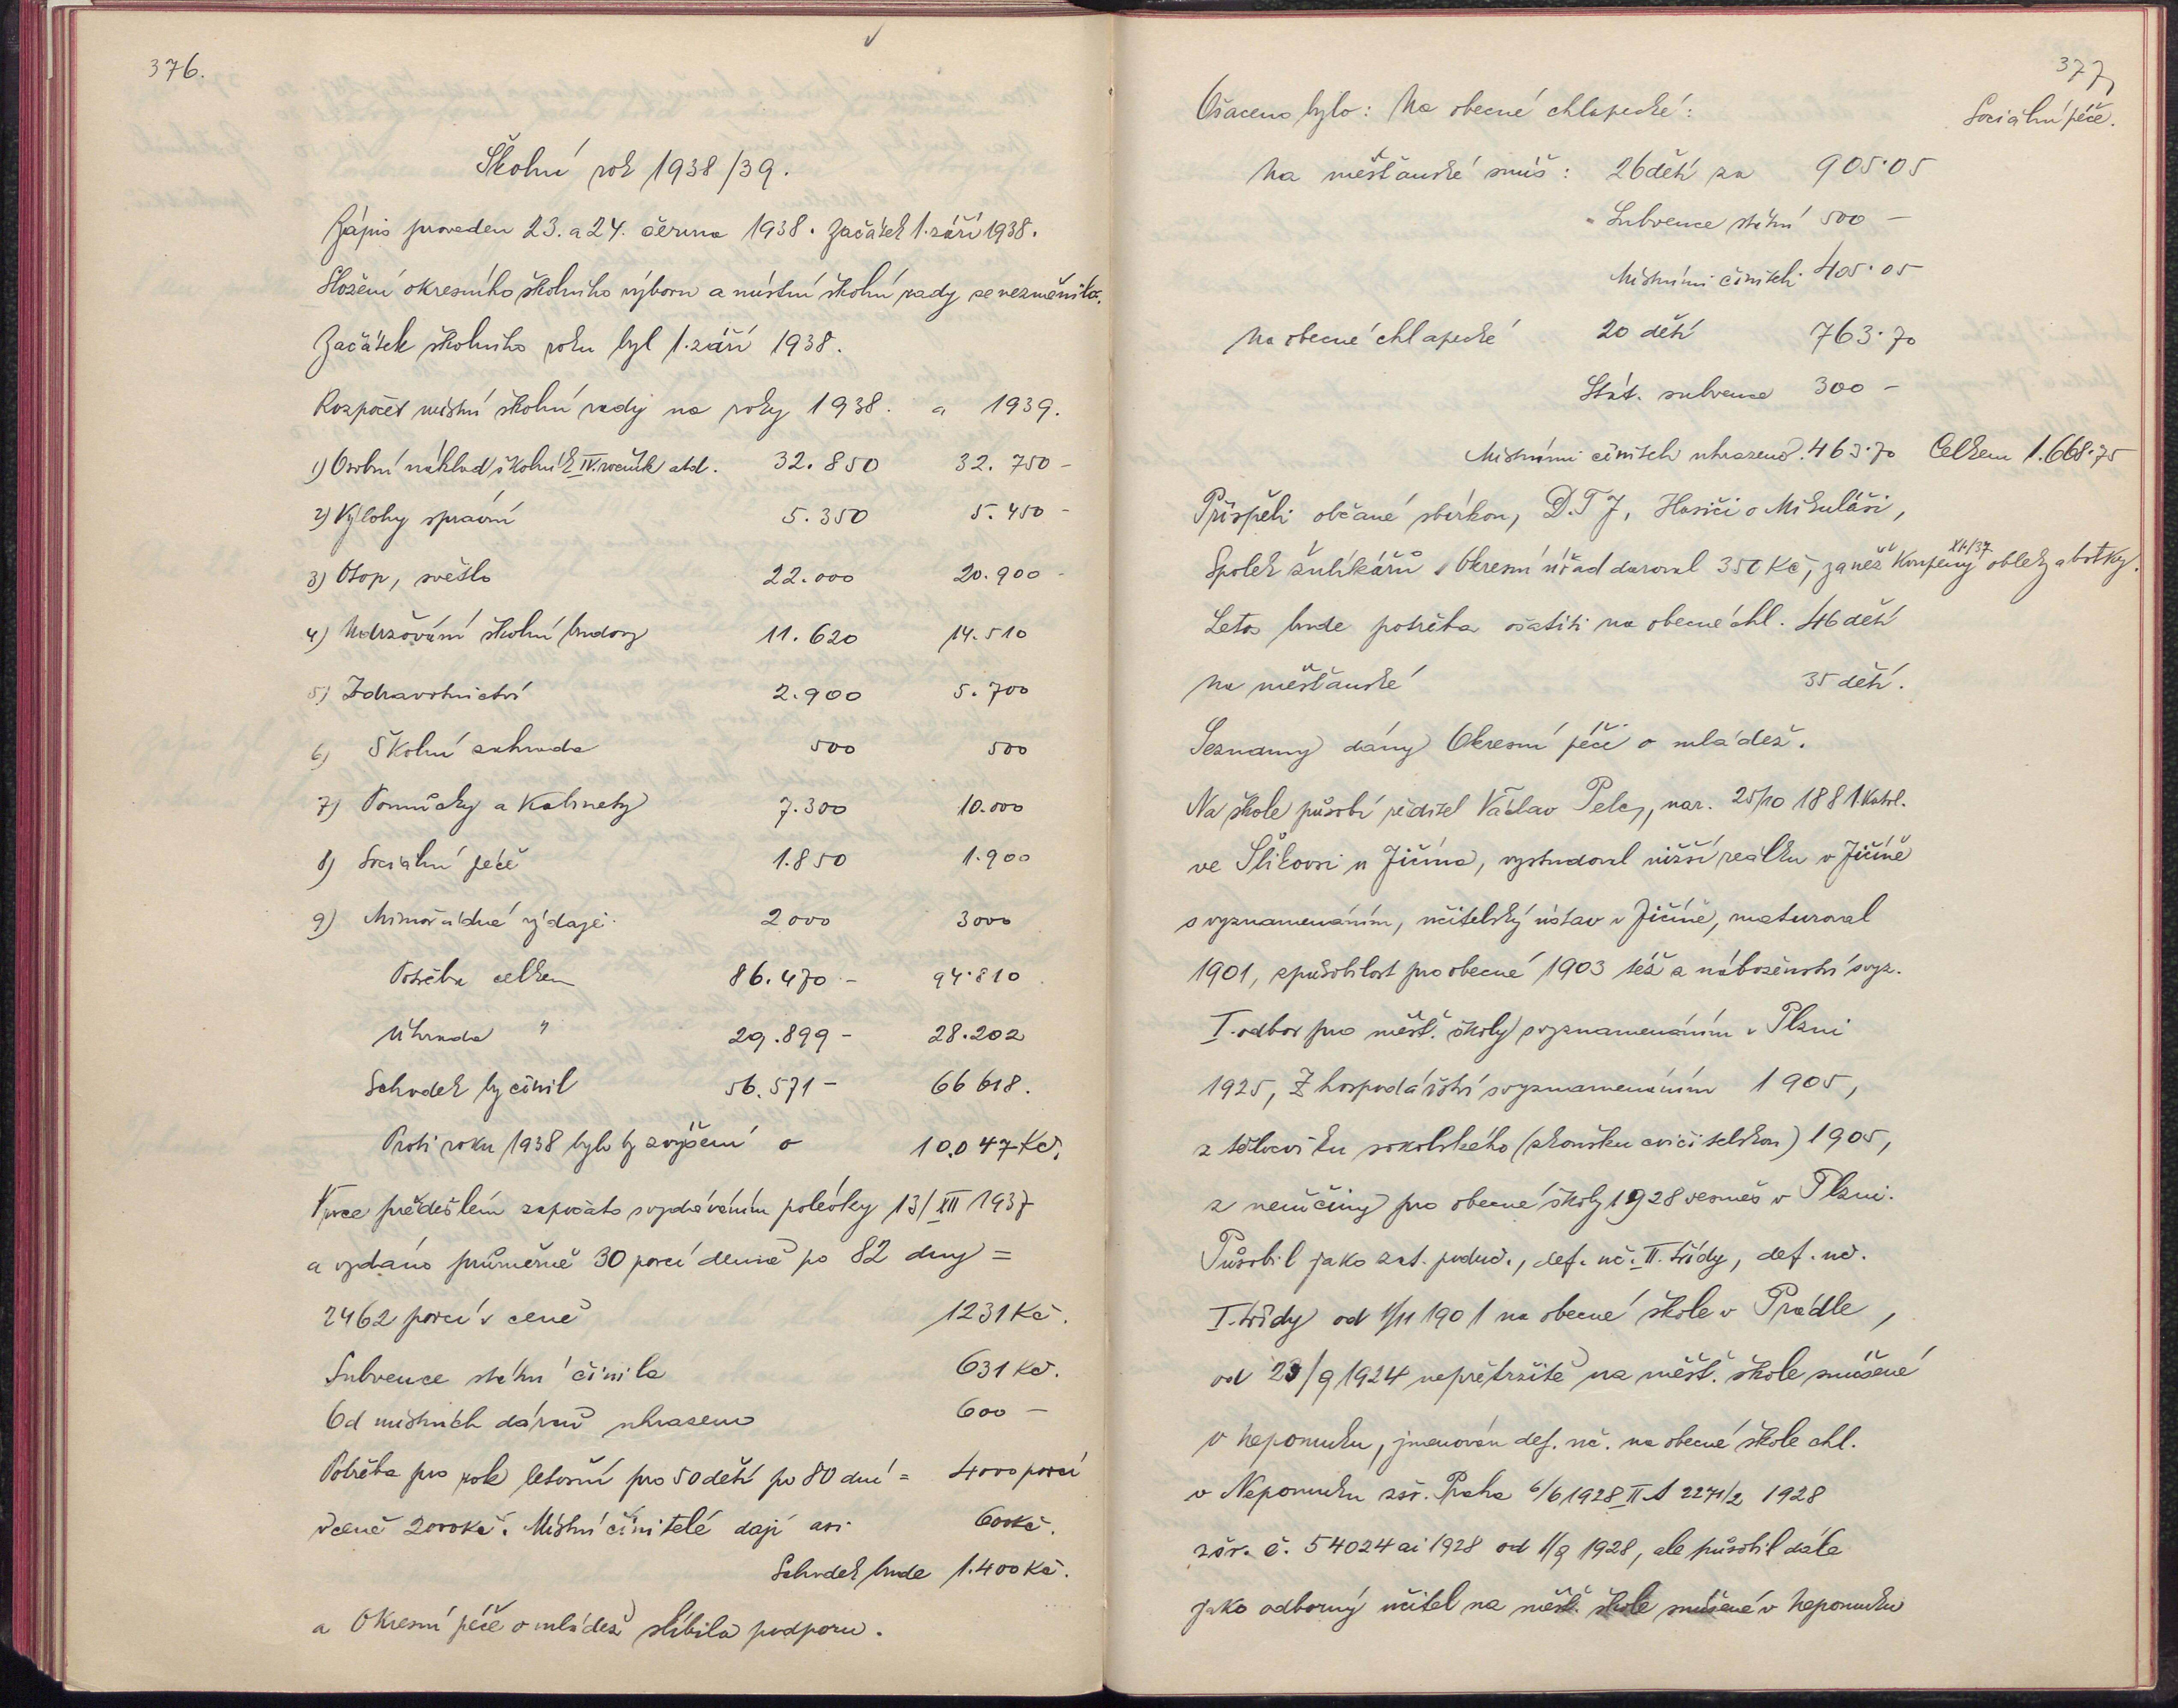 376.
Školní rok 1938/39.
Zápis proveden 23. a 24. června 1938. Začátek 1. září 1938.
Složení okresního školního výboru a místní školní rady se nezměnilo.
Začátek školního roku byl 1. září 1938.
Rozpočet místní školní rady na roky 1938. a 1939.
1) Osobní náklad školník IV. ročník atd. 32.850 32.750 -
2) Výlohy správní 5.350 5.450 -
3) Otop, světlo 22.000 20.900 -
4) Udržování školní budovy 11.620 14.510
5) Zdravotnictví 2.900 5.700
6) Školní zahrada 500 500
7) Pomůcky a Kabinety 7.300 10.000
8) Sociální péče 1.850 1.900
9) Mimořádné výdaje 2000 3000
Potřeba celkem 86.470 - 94.810
Úhrada " 29.899 - 28.202
Schodek by činil 56.571 - 66618.
Proti roku 1938 bylo by zvýšení o 10.047 Kč.
V roce předešlém započato s vydáváním polévky 13/XII 1937
a vydáno průměrně 30 porcí denně po 82 dny =
2462 porcí v ceně 1231 Kč.
Subvence státní činila 631 Kč.
Od místních dárců uhrazeno 600 -
Potřeba pro rok letošní pro 50 dětí po 80 dní = 4000 porcí
v ceně 2000 Kč. Místní činitelé dají asi 600 Kč.
Schodek bude 1.400 Kč.
a Okresní péče o mládež slíbila podporu.
377,
Sociální péče.
Ošaceno bylo: Na obecné chlapecké:
Na měšťanské smíš: 26 dětí za 905.05
Subvence státní 500 -
Místními činiteli 405.05
Na obecné chlapecké 20 dětí 763.70
Stát. subvence 300 -
Místními činiteli uhrazeno. 463.70 Celkem 1.668.75
Přispěli občané sbírkou, D.T.J, Hasiči o Mikuláši,
Spolek žulikářů. Okresní úřad daroval 350 Kč, za něž XII/37 koupeny obleky a botky.
Letos bude potřeba ošatiti na obecné chl. 46 dětí
na měšťanské 35 dětí.
Seznamy dány Okresní péči o mládež.
Na škole působí ředitel Václav Pelc, nar. 25/10 1881. Katol.
ve Šlikovsi u Jičína, vystudoval nižší reálku v Jičíně
s vyznamenáním, učitelský ústav v Jičíně, maturoval
1901, způsobilost pro obecné 1903 též z náboženství svyz.
I. odbor pro měšť. školy s vyznamenáním v Plzni
1925, Z hospodářství s vyznamenáním 1905,
z tělocviku sokolského (zkoušku cvičitelskou) 1905,
z němčiny pro obecné školy 1928 vesměs v Plzni.
Působil jako zat. poduč., def. uč. II. třídy, def. uč.
I. třídy od 1/11 1901 na obecné škole v Prádle,
od 23/9 1924 nepřetržitě na měšť. škole smíšené
v Nepomuku, jmenován def. uč. na obecné škole chl.
v Nepomuku zšr. Praha 6/6 1928 II A 2271/2 1928
zšr. č. 54024 ai 1928 od 1/9 1928, ale působil dále
jako odborný učitel na měšť. škole smíšené v Nepomuku